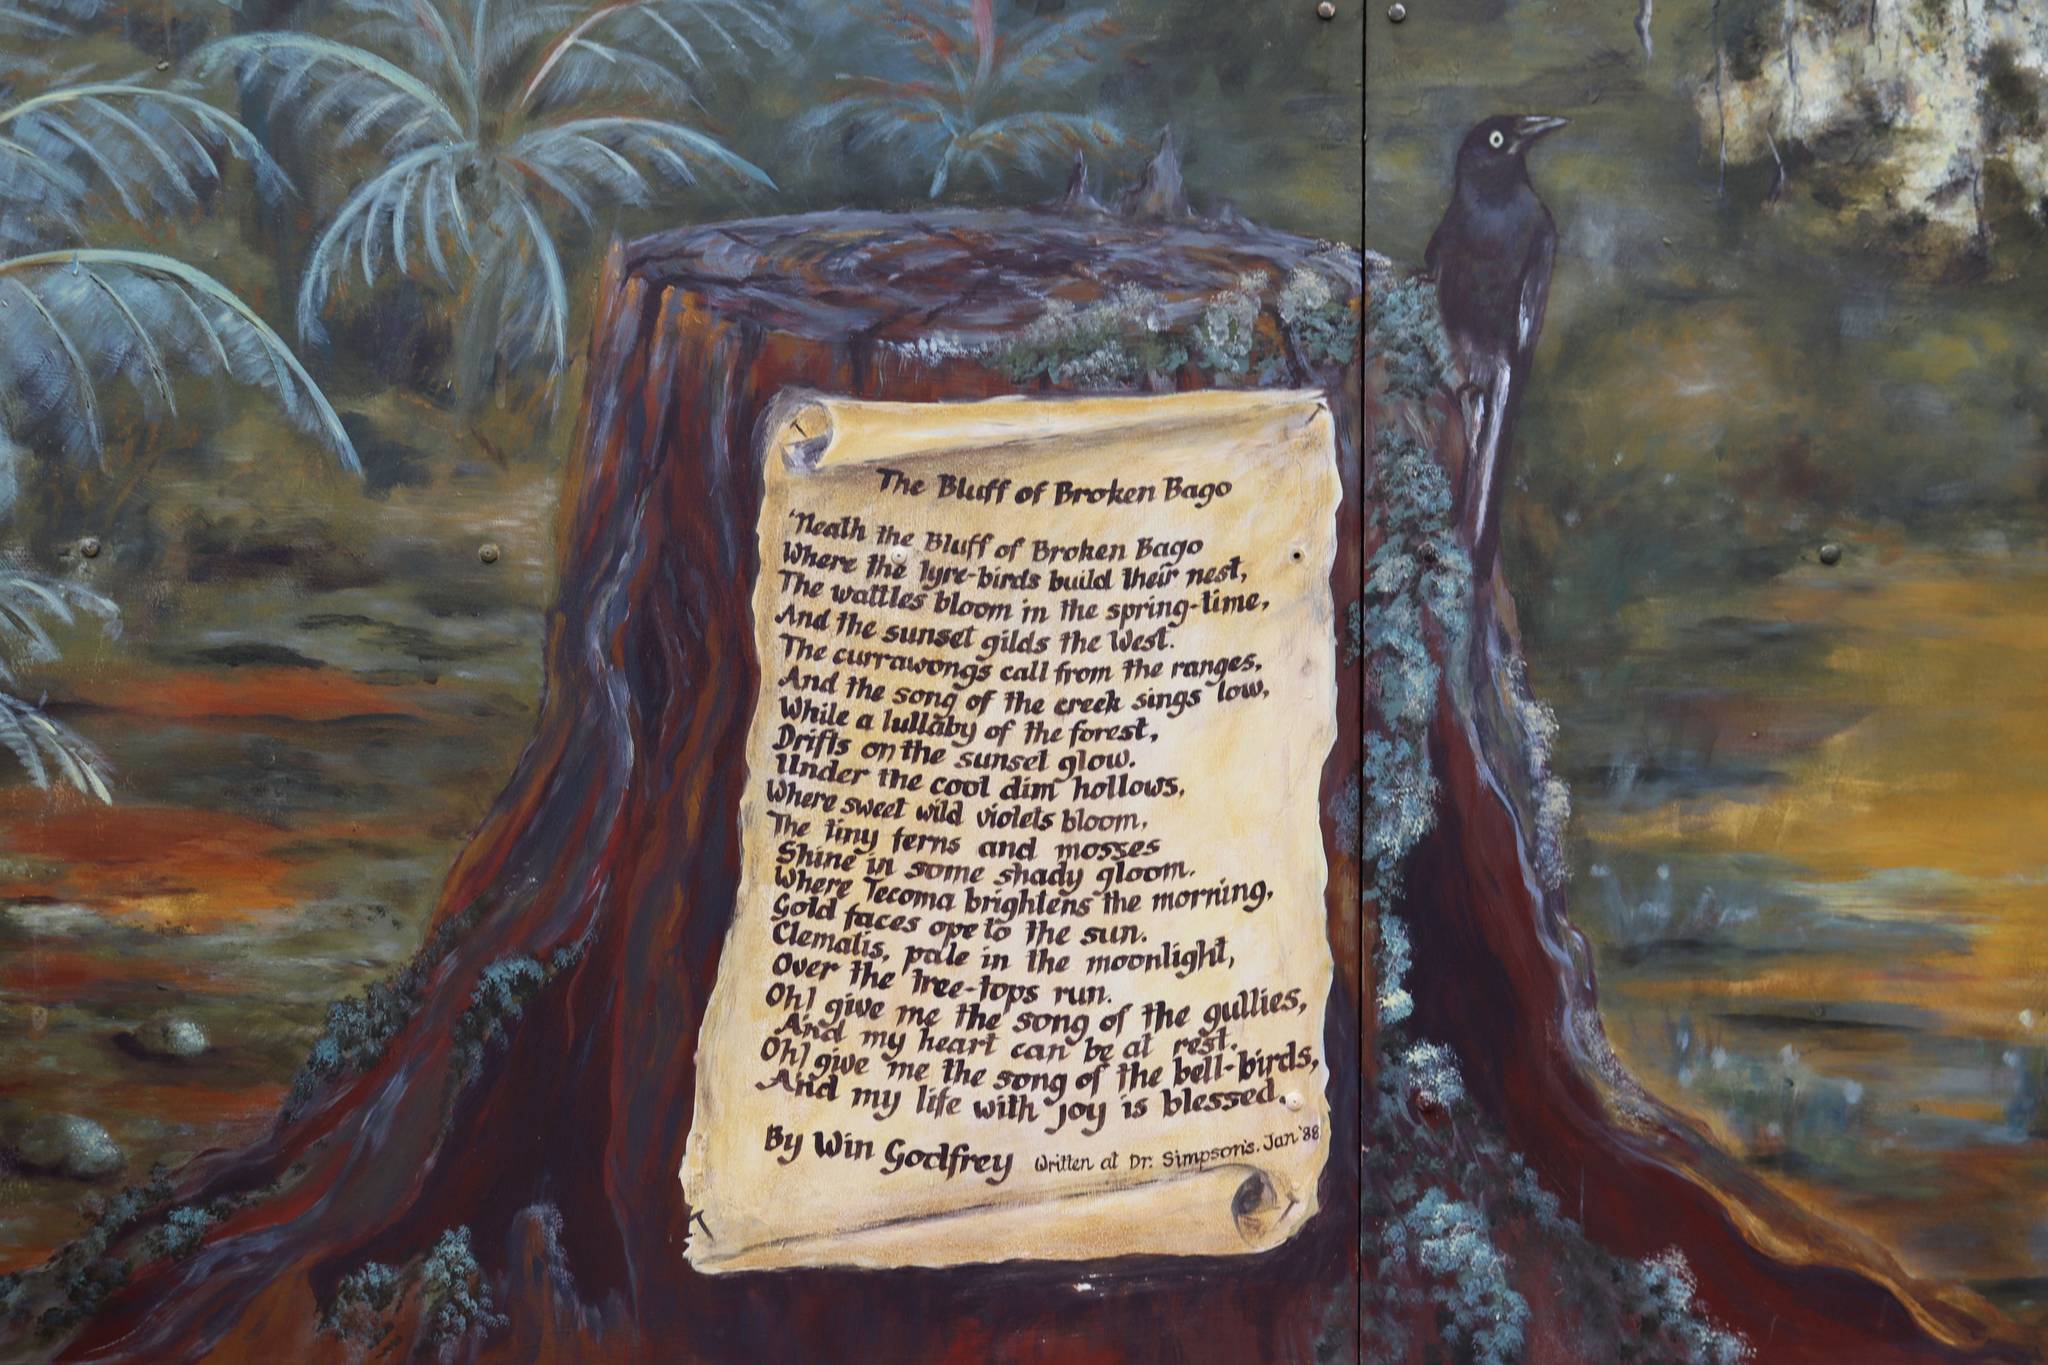 The Bluff of Broken Bago
'Neath the Bluff of Broken Bago
Where the lyre-birds build their nest,
The wattles bloom in the spring-time,
And the sunset gilds the West.
The currawongs call from the ranges,
And the song of the creek sings low,
While a lullaby of the forest,
Drifts on the sunset glow.
Under the cool dim hollows,
Where sweet wild violets bloom,
The tiny ferns and mosses
Shine in some shady gloom.
Where Tecoma brightens the morning,
Gold faces ope to the sun.
Clematis, pale in the moonlight,
Over the tree-tops run.
Oh! give me the song of the gullies,
And my heart can be at rest.
Oh! give me the song of the bell-birds,
And my life with joy is blessed.
By Win Godfrey Written at Dr. Simpson's. Jan '88